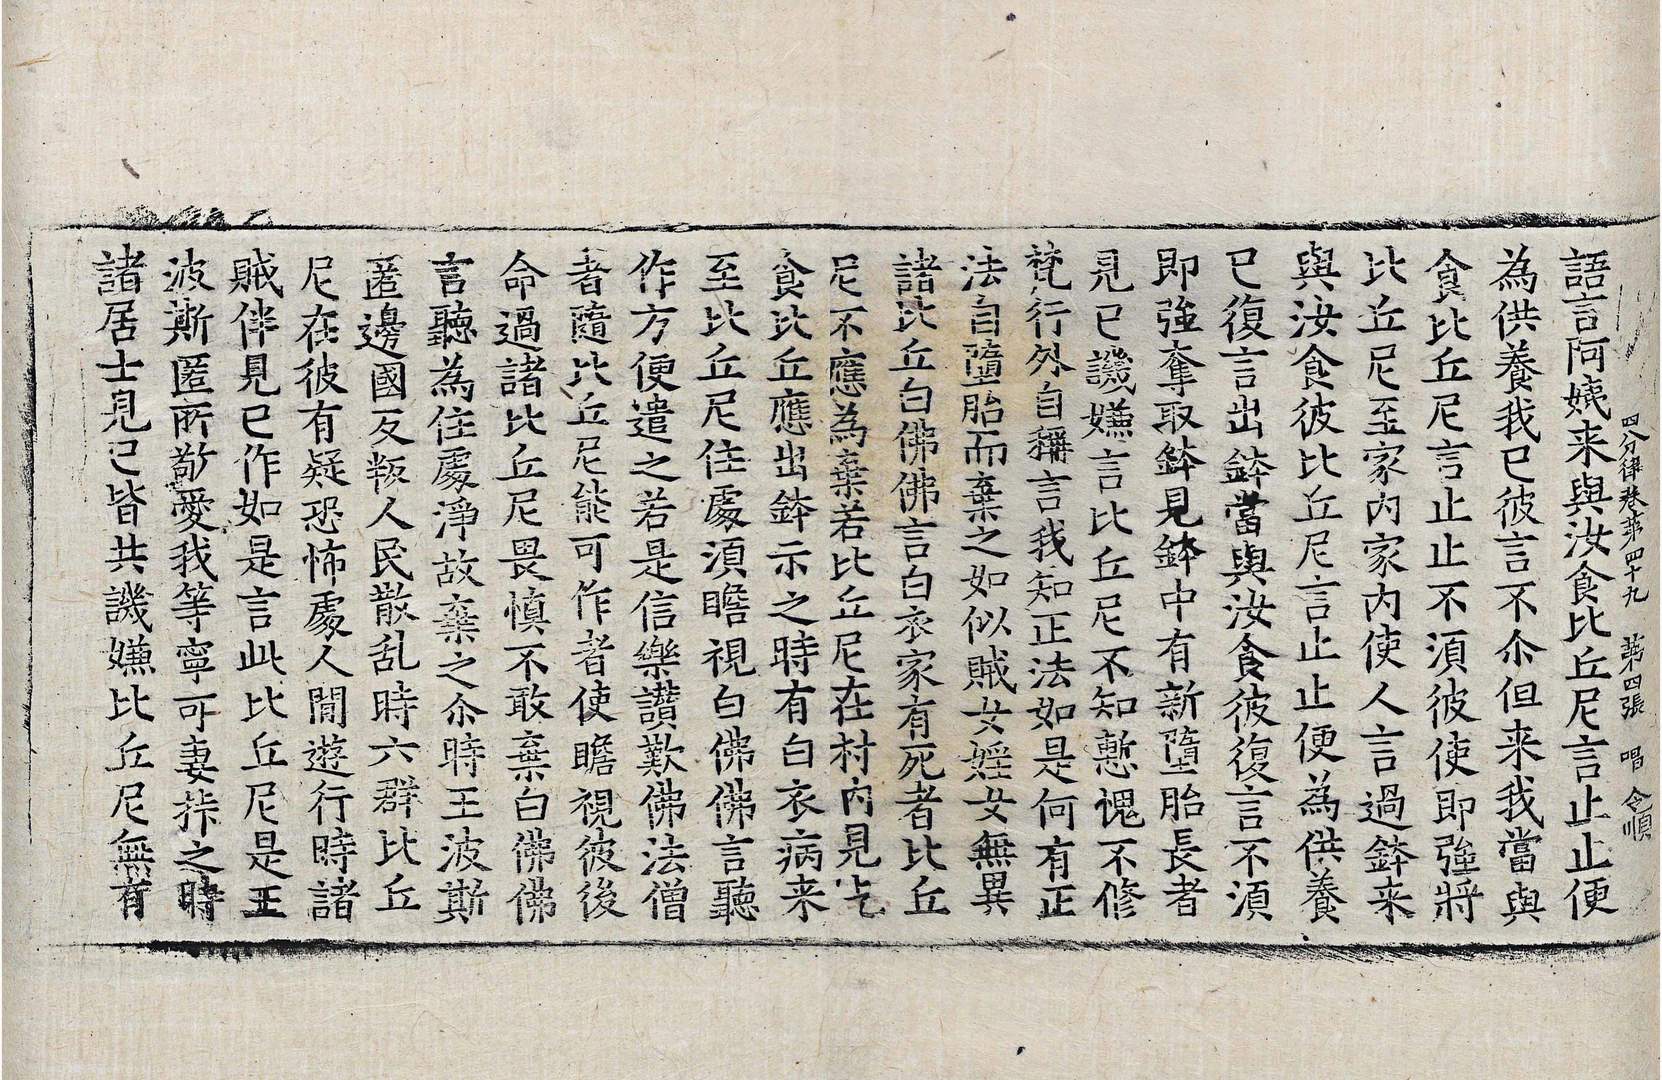 四分律卷第四十九 第四張 唱 令順
語言阿姨来與汝食比丘尼言止止便
為供養我已彼言不尒但来我當與
食比丘尼言止止不須彼使即強將
比丘尼至家内家内使人言過鉢来
與汝食彼比丘尼言止止便為供養
已復言出鉢當與汝食彼復言不須
即強奪取鉢見鉢中有新墮胎長者
見已譏嫌言比丘尼不知慙愧不修
梵行外自稱言我知正法如是何有正
法自墮胎而棄之如似賊女婬女無異
諸比丘白佛佛言白衣家有死者比丘
尼不應為棄若比丘尼在村内見乞
食比丘應出鉢示之時有白衣病来
至比丘尼住處須瞻視白佛佛言聽
作方便遣之若是信樂讃歎佛法僧
者隨比丘尼能可作者使瞻視彼後
命過諸比丘尼畏慎不敢棄白佛佛
言聽為住處淨故棄之尒時王波斯
匿邊國反叛人民散乱時六群比丘
尼在彼有疑恐怖處人間遊行時諸
賊伴見已作如是言此比丘尼是王
波斯匿所敬愛我等寧可妻挊之時
諸居士見已皆共譏嫌比丘尼無有